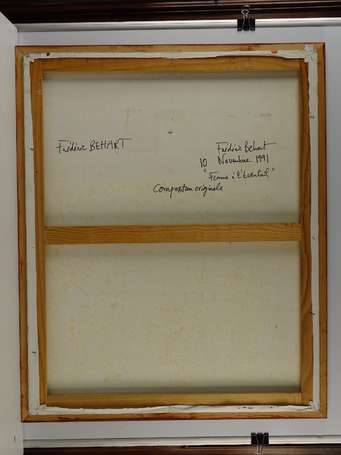 Frédéric BEHART
Frédéric Behart
10 Novembre 1991
"Femme à l'éventail"
Composition originale